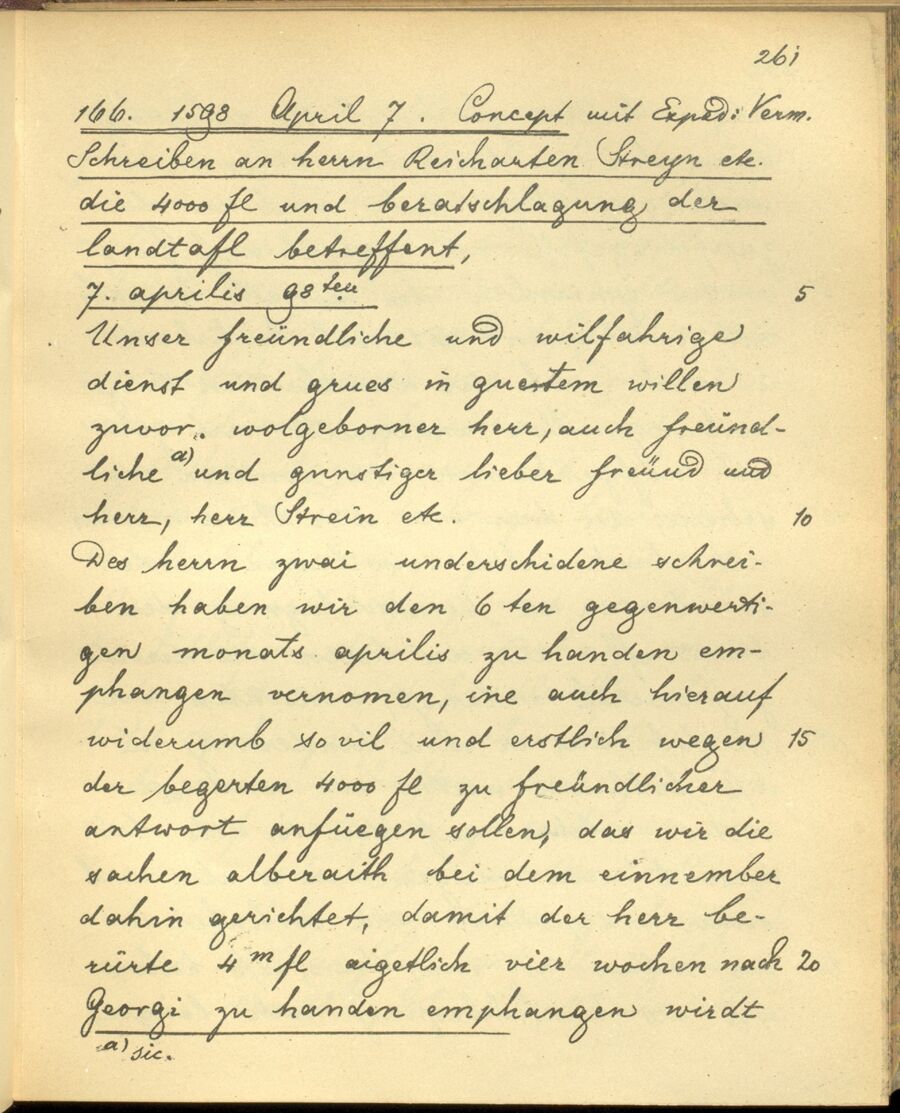 261
166. 1598 April 7. Concept mit Exped: Verm.
Schreiben an herrn Reicharten Streyn etc.
die 4000 fl und beratschlagung der
landtafl betreffent,
7. aprilis 98ten
5
Unser freündliche und wilfahrige
dienst und grues in guetem willen
zuvor. wolgeborner herr, auch freünd-
liche a) und gunstiger lieber freünd und
herr, herr Strein etc.
10
Des herrn zwai underschidene schrei-
ben haben wir den 6ten gegenwerti-
gen monats aprilis zu handen em-
phangen vernomen, ine auch hierauf
widerumb sovil und erstlich wegen 15
der begerten 4000 fl zu freündlicher
antwort anfüegen sollen, das wir die
sachen alberaith bei dem einnember
dahin gerichtet, damit der herr be-
rürte 4m fl aigetlich vier wochen nach 20
Georgi zu handen emphangen wirdt
a) sic.